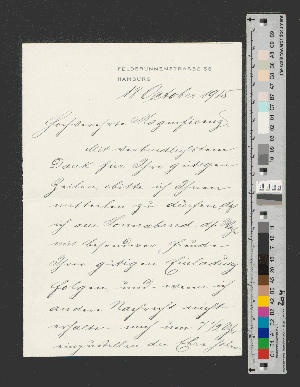 FELDBRUNNENSTRASSE 56
HAMBURG
18 October 1915
Hochverehrte Magnificenz,
Mit verbindlichstem
Dank für Ihre gütigen
Zeilen, bitte ich Ihnen
mitteilen zu dürfen, daß
ich am Sonnabend
mit besonderer Freude
Ihrer gütigen Einladung
folgen und wenn ich
andere Nachricht nicht
erhalte mich um 7 1/2 Uhr
einzustellen die Ehre haben